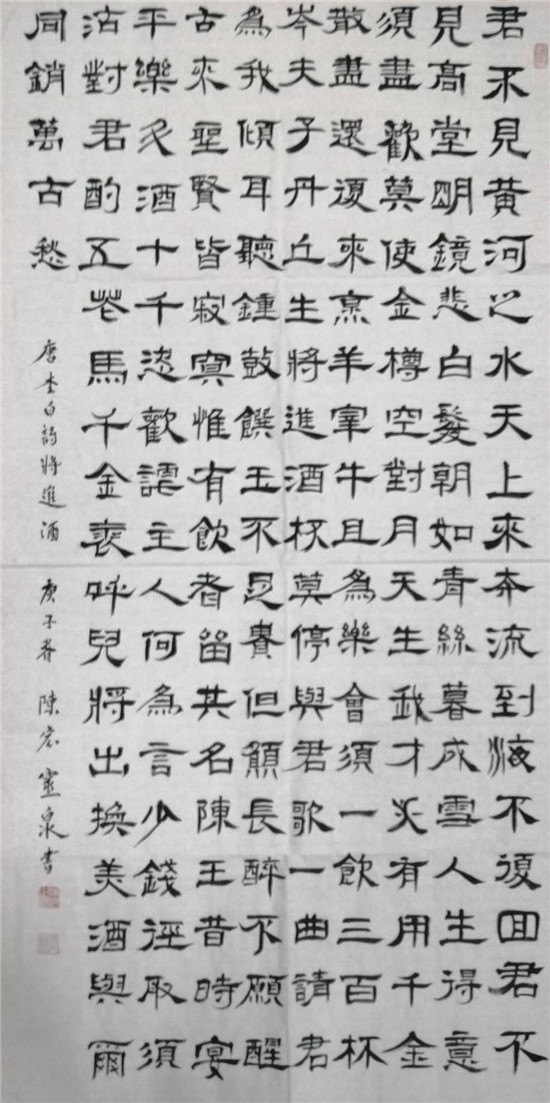 君不見黃河之水天上來奔流到海不復回君不
見高堂明鏡悲白髮朝如青絲暮成雪人生得意
須盡歡莫使金樽空對月天生我才必有用千金
散盡還復來烹羊宰牛且為樂會須一飲三百杯
岑夫子丹丘生將進酒杯莫停與君歌一曲請君
為我傾耳聽鍾鼓饌玉不足貴但願長醉不願醒
古來聖賢皆寂寞惟有飲者留其名陳王昔時宴
平樂斗酒十千恣歡謔主人何為言少錢徑取須
沽對君酌五花馬千金裘呼兒將出換美酒與爾
同銷萬古愁
唐李白詩將進酒 庚子春 陳宏靈泉書